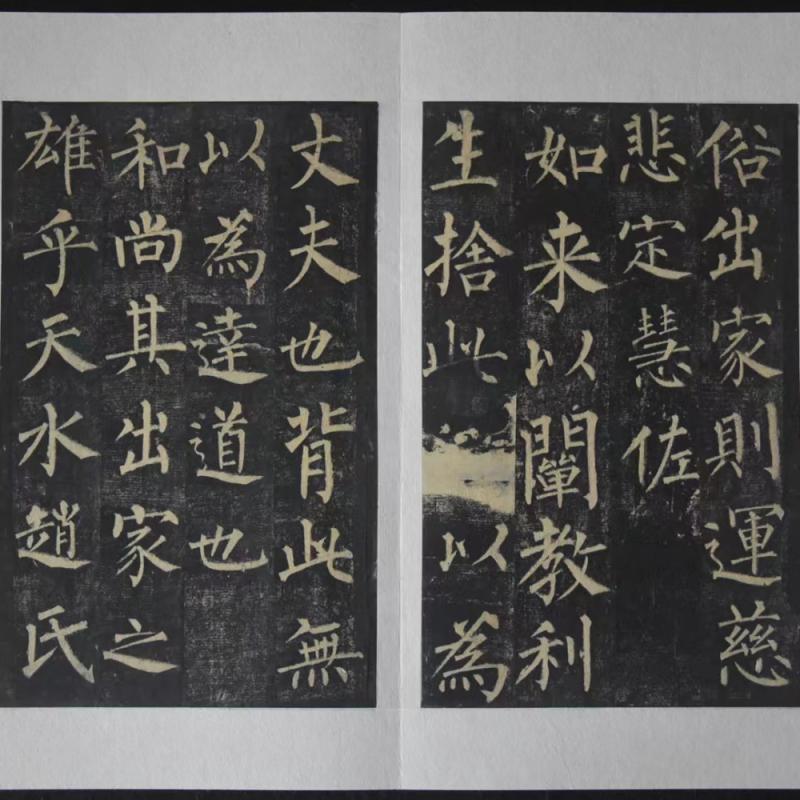 俗出家則運慈
悲定慧佐
如来以闡教利
生捨此以為
丈夫也背此無
以為達道也
和尚其出家之
雄乎天水趙氏